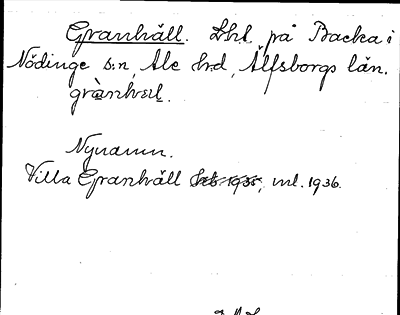 Granhäll. Lht på Backa i
Nödinge s:n, Ale hd, Älfsborgs län.
grànhɛɩl.
Nynamn.
Villa Granhäll, ml. 1936.